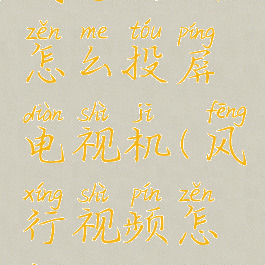 zěn me tóu píng
怎么投屏
diàn shì jī fēng
电视机(风
xíng shì pín zěn
行视频怎